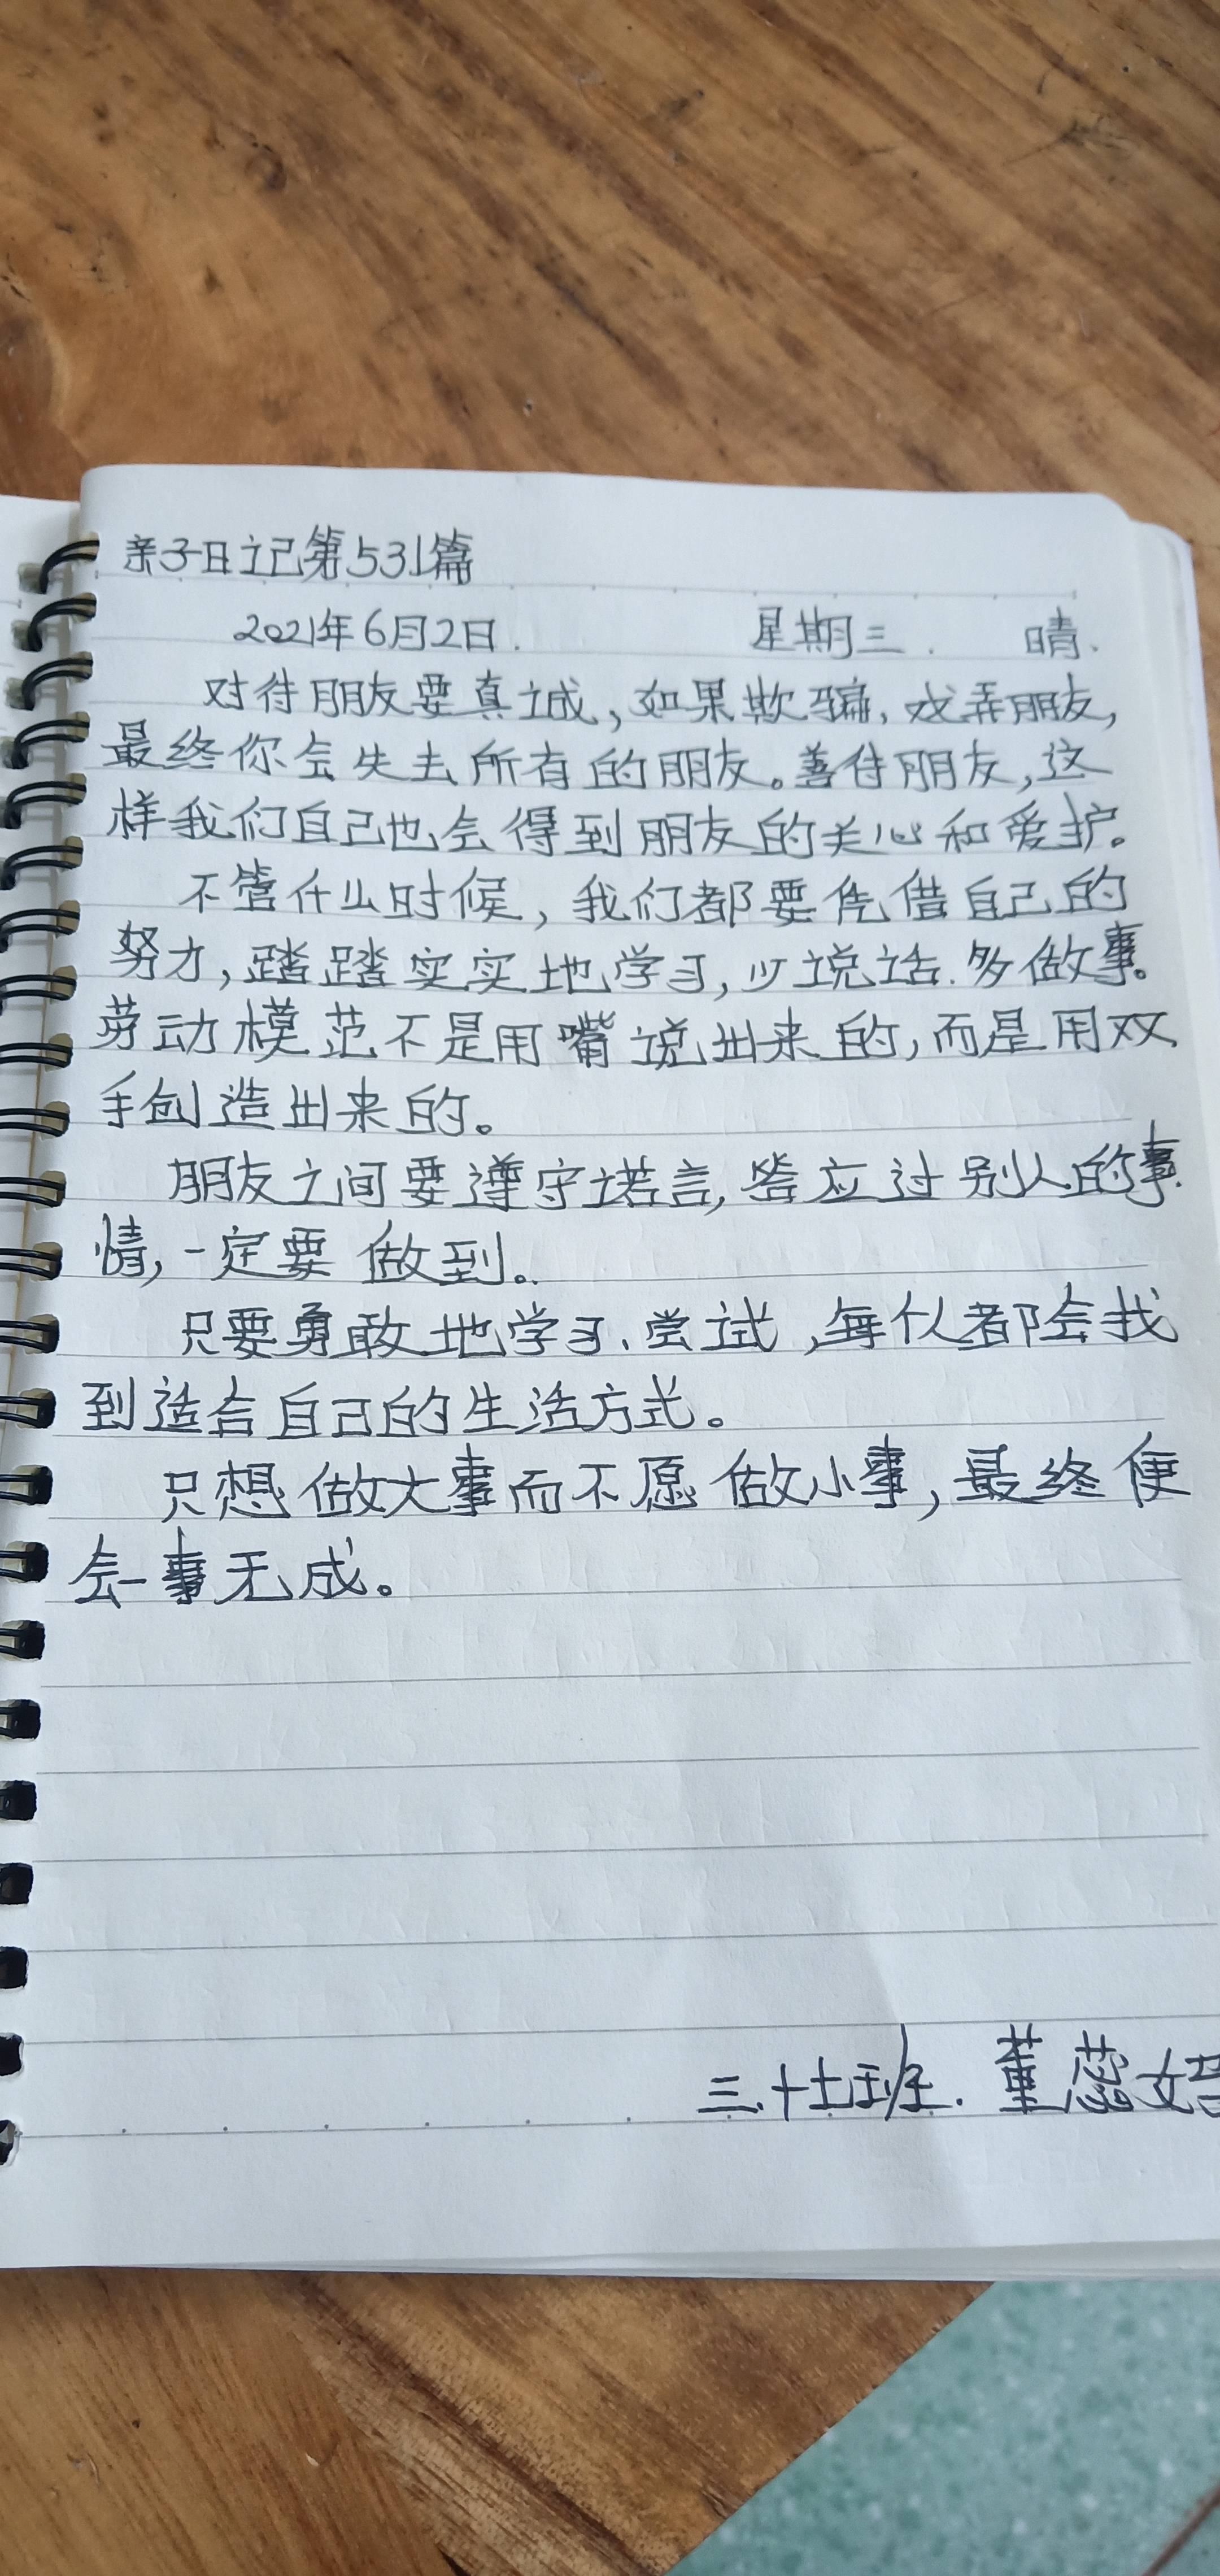 亲子日记第531篇
2021年6月2日. 星期三. 晴.
对待朋友要真诚,如果欺骗,戏弄朋友,
最终你会失去所有的朋友。善待朋友,这
样我们自己也会得到朋友的关心和爱护。
不管什么时候,我们都要凭借自己的
努力,踏踏实实地学习,少说话.多做事。
劳动模范不是用嘴说出来的,而是用双
手创造出来的。
朋友之间要遵守诺言,答应过别人的事
情,一定要做到。
只要勇敢地学习、尝试,每个人都会找
到适合自己的生活方式。
只想做大事而不愿做小事,最终便
会一事无成。
三.十七班.董蕊